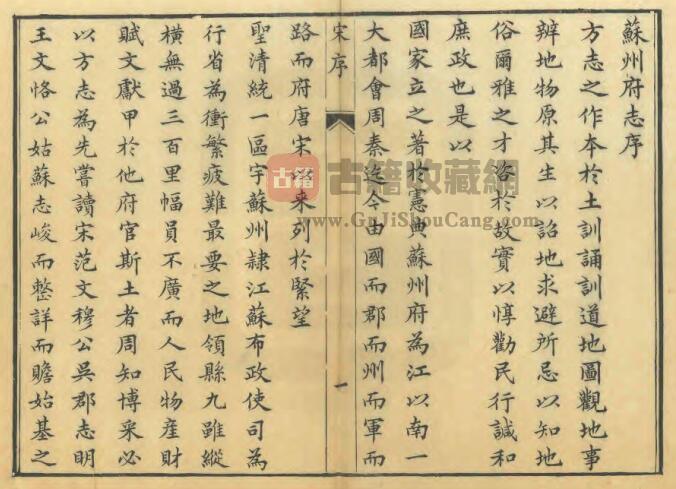 蘇州府志序
方志之作本於土訓誦訓道地圖觀地事
辨地物原其生以詔地求避所忌以知地
俗爾雅之才咨於故實以惇勸民行諴和
庶政也是以
國家立之著於憲典蘇州府為江以南一
大都會周秦迄今由國而郡而州而軍而
宋序
一
路而府唐宋以来列於緊望
聖清統一區宇蘇州隷江蘇布政使司為
行省為衝繁疲難最要之地領縣九雖縱
橫無過三百里幅員不廣而人民物産財
賦文獻甲於他府官斯土者周知博采必
以方志為先嘗讀宋范文穆公吳郡志明
王文恪公姑蘇志峻而整詳而贍始基之
古籍
古籍收藏網
www.GuJiShouCang.com